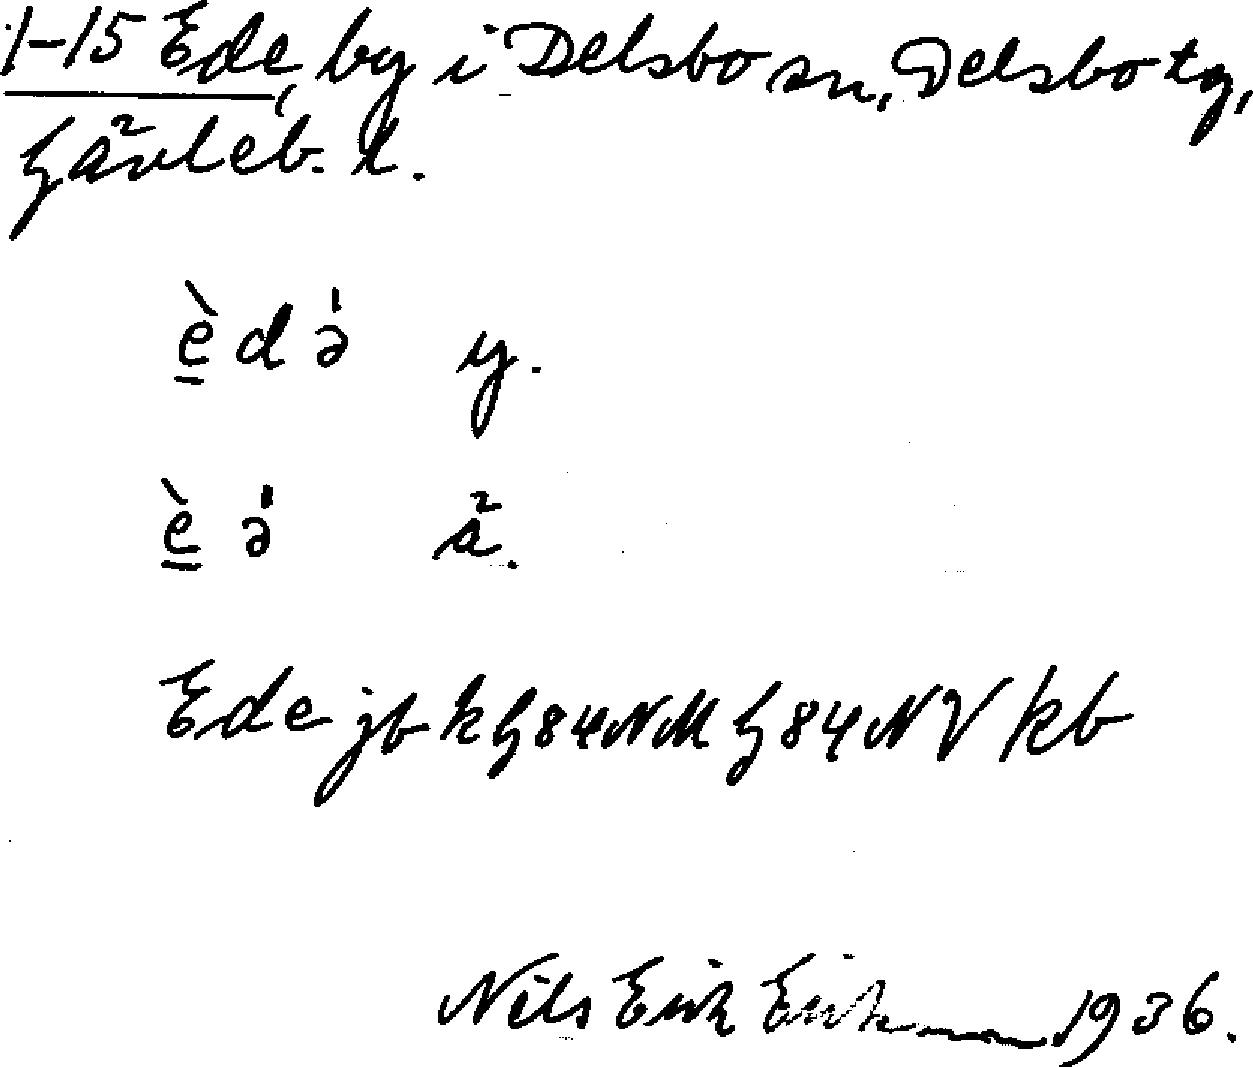 1-15 Ede, by i Delsbo sn, Delsbo tg,
Gävleb. l.
è̱də̍ y.
è̱ ə̍ ä.
Ede jb k G84NM G84NV kb
Nils Erik Erikson 1936.